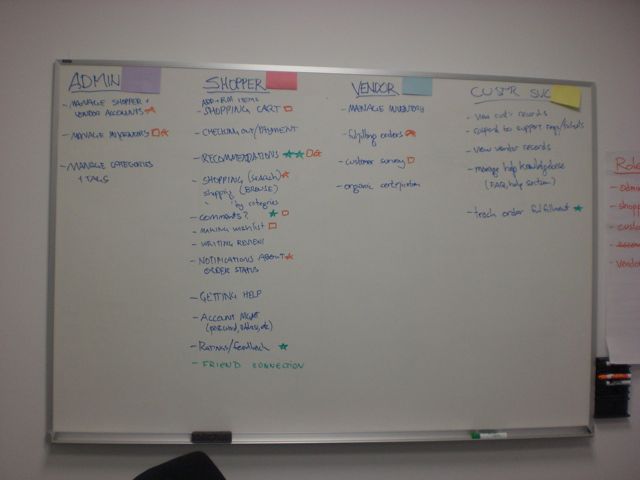 ADMIN
- MANAGE SHOPPER +
VENDOR ACCOUNTS
- MANAGE INVENTORIES
- MANAGE CATEGORIES
+ TAGS
SHOPPER
ADD + RM ITEMS
- SHOPPING CART
- CHECKING OUT/PAYMENT
- RECOMMENDATIONS
- SHOPPING (SEARCH)
shopping (BROWSE)
" by categories
- comments?
- MAKING WISHLIST
- WRITING REVIEW
- NOTIFICATIONS ABOUT
ORDER STATUS
- GETTING HELP
- ACCOUNT MGMT
- Ratings/feedback
- FRIEND CONNECTION
VENDOR
- MANAGE INVENTORY
- fulfilling orders
- customer survey
- organic certification
CUST SVC
- view cust. records
- respond to support
- view vendor records
- manage help knowledgebase
(FAQ, help section)
- track order fulfillment
Role
- admi
- shopp
- custo
- vendo